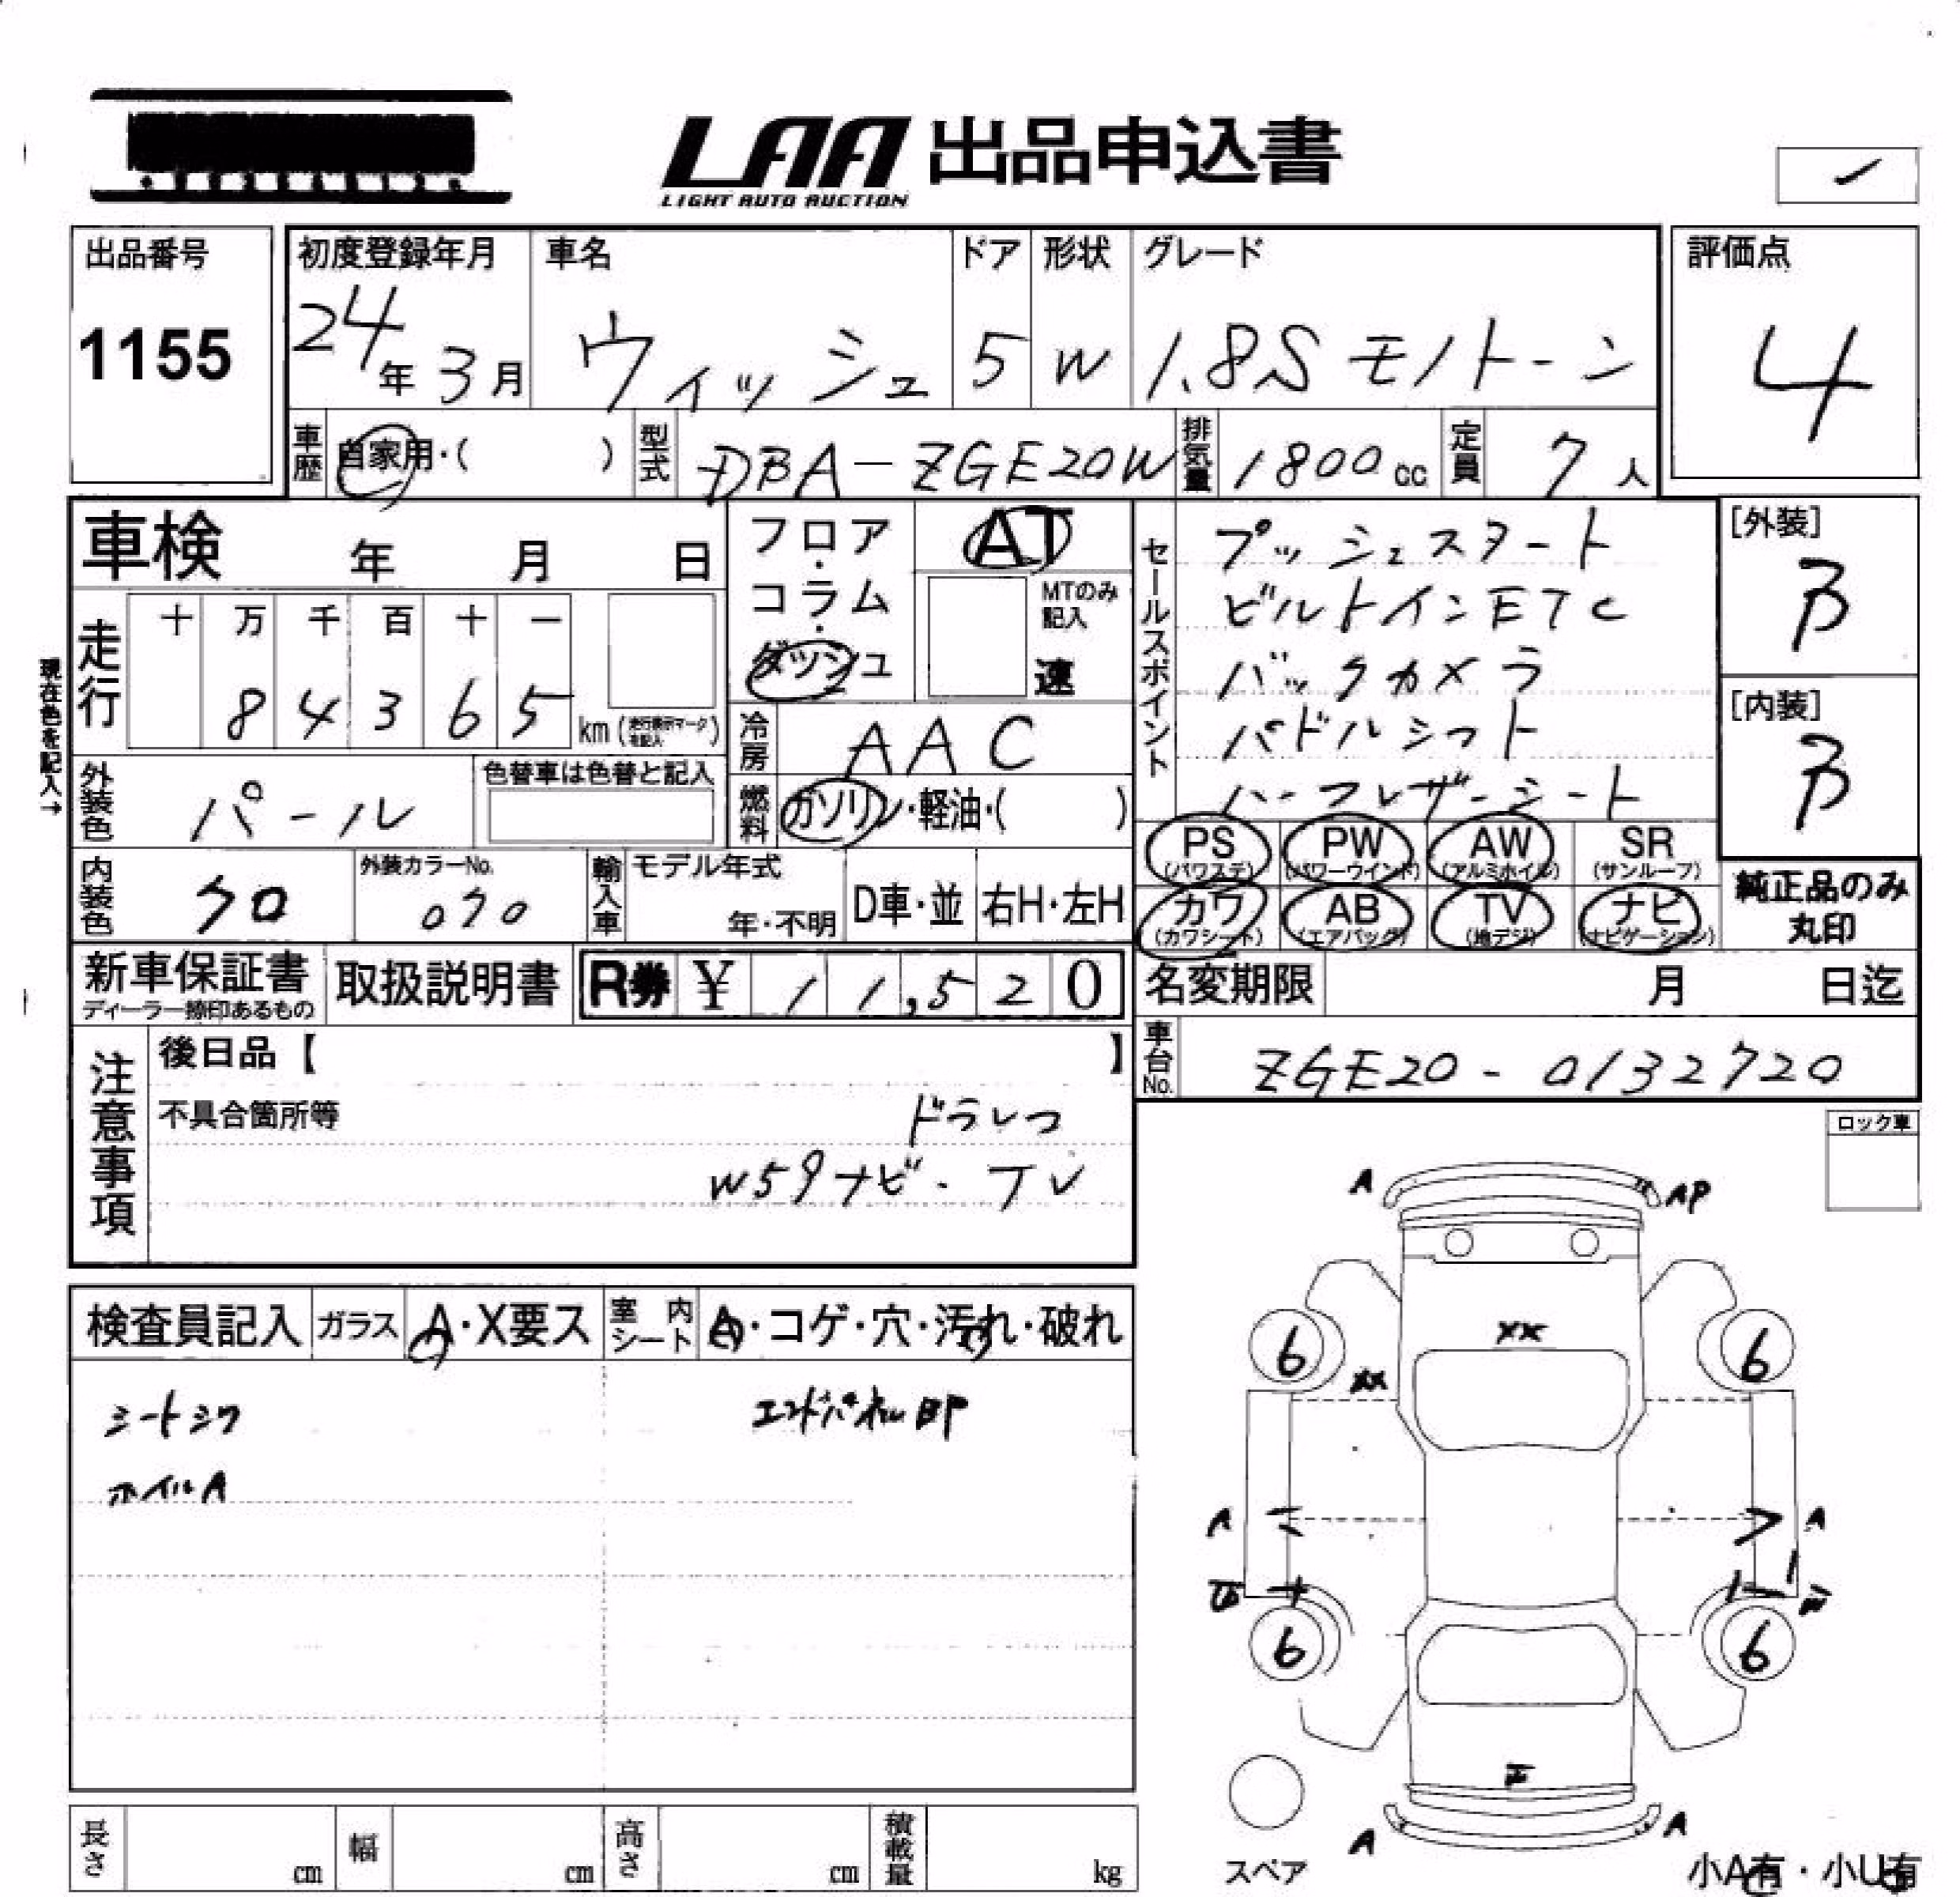 LAA 出品申込書
LIGHT AUTO AUCTION
出品番号
1155
初度登録年月
24年3月
車名
ウィッシュ
ドア
5
形状
W
グレード
1.8S モノトーン
評価点
4
車歴
自家用・( )
型式
DBA-ZGE20W
排気量
1800cc
定員
7人
車検 年 月 日
フロア・コラム・ダッシュ
AT
MTのみ記入
速
セールスポイント
プッシュスタート
ビルトインETC
バックカメラ
パドルシフト
ハーフレザーシート
[外装]
B
[内装]
B
現在色を記入→
走行
十 万 千 百 十 一
8 4 3 6 5
km(走行表示マークを記入)
冷房
AAC
外装色
パール
色替車は色替と記入
燃料
ガソリン・軽油・( )
PS (パワステ)
PW (パワーウインド)
AW (アルミホイル)
SR (サンルーフ)
カワ (カワシート)
AB (エアバッグ)
TV (地デジ)
ナビ (ナビゲーション)
純正品のみ
丸印
内装色
クロ
外装カラーNo.
070
輸入車
モデル年式
年・不明
D車・並
右H・左H
新車保証書
ディーラー捺印あるもの
取扱説明書
R券 ¥ 11,520
名変期限 月 日迄
車台No.
ZGE20-0132720
注意事項
後日品【 】
不具合箇所等
ドラレコ
W59ナビ・TV
ロック車
検査員記入
ガラス
A・X要ス
室内シート
A・コゲ・穴・汚れ・破れ
シートシワ
エンドパネル凹P
ホイルA
A
AP
XX
XX
6
6
A
A
6
6
A
A
スペア
小A有・小U有
長さ cm
幅 cm
高さ cm
積載量 kg